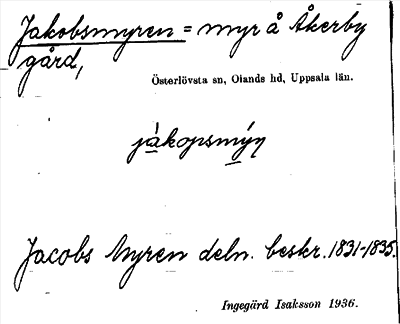 Jakobsmyren = myr å Åkerby
gård,
Österlövsta sn, Olands hd, Uppsala län.
jákopsmýņ
Jacobs Myren deln. beskr. 1831-1835.
Ingegärd Isaksson 1936.